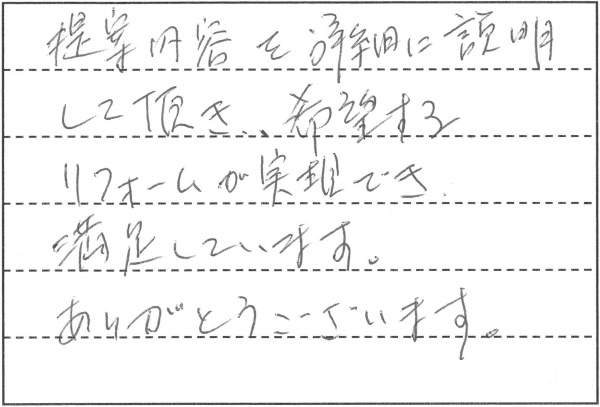 提案内容を詳細に説明
して頂き、希望する
リフォームが実現でき
満足しています。
ありがとうございます。